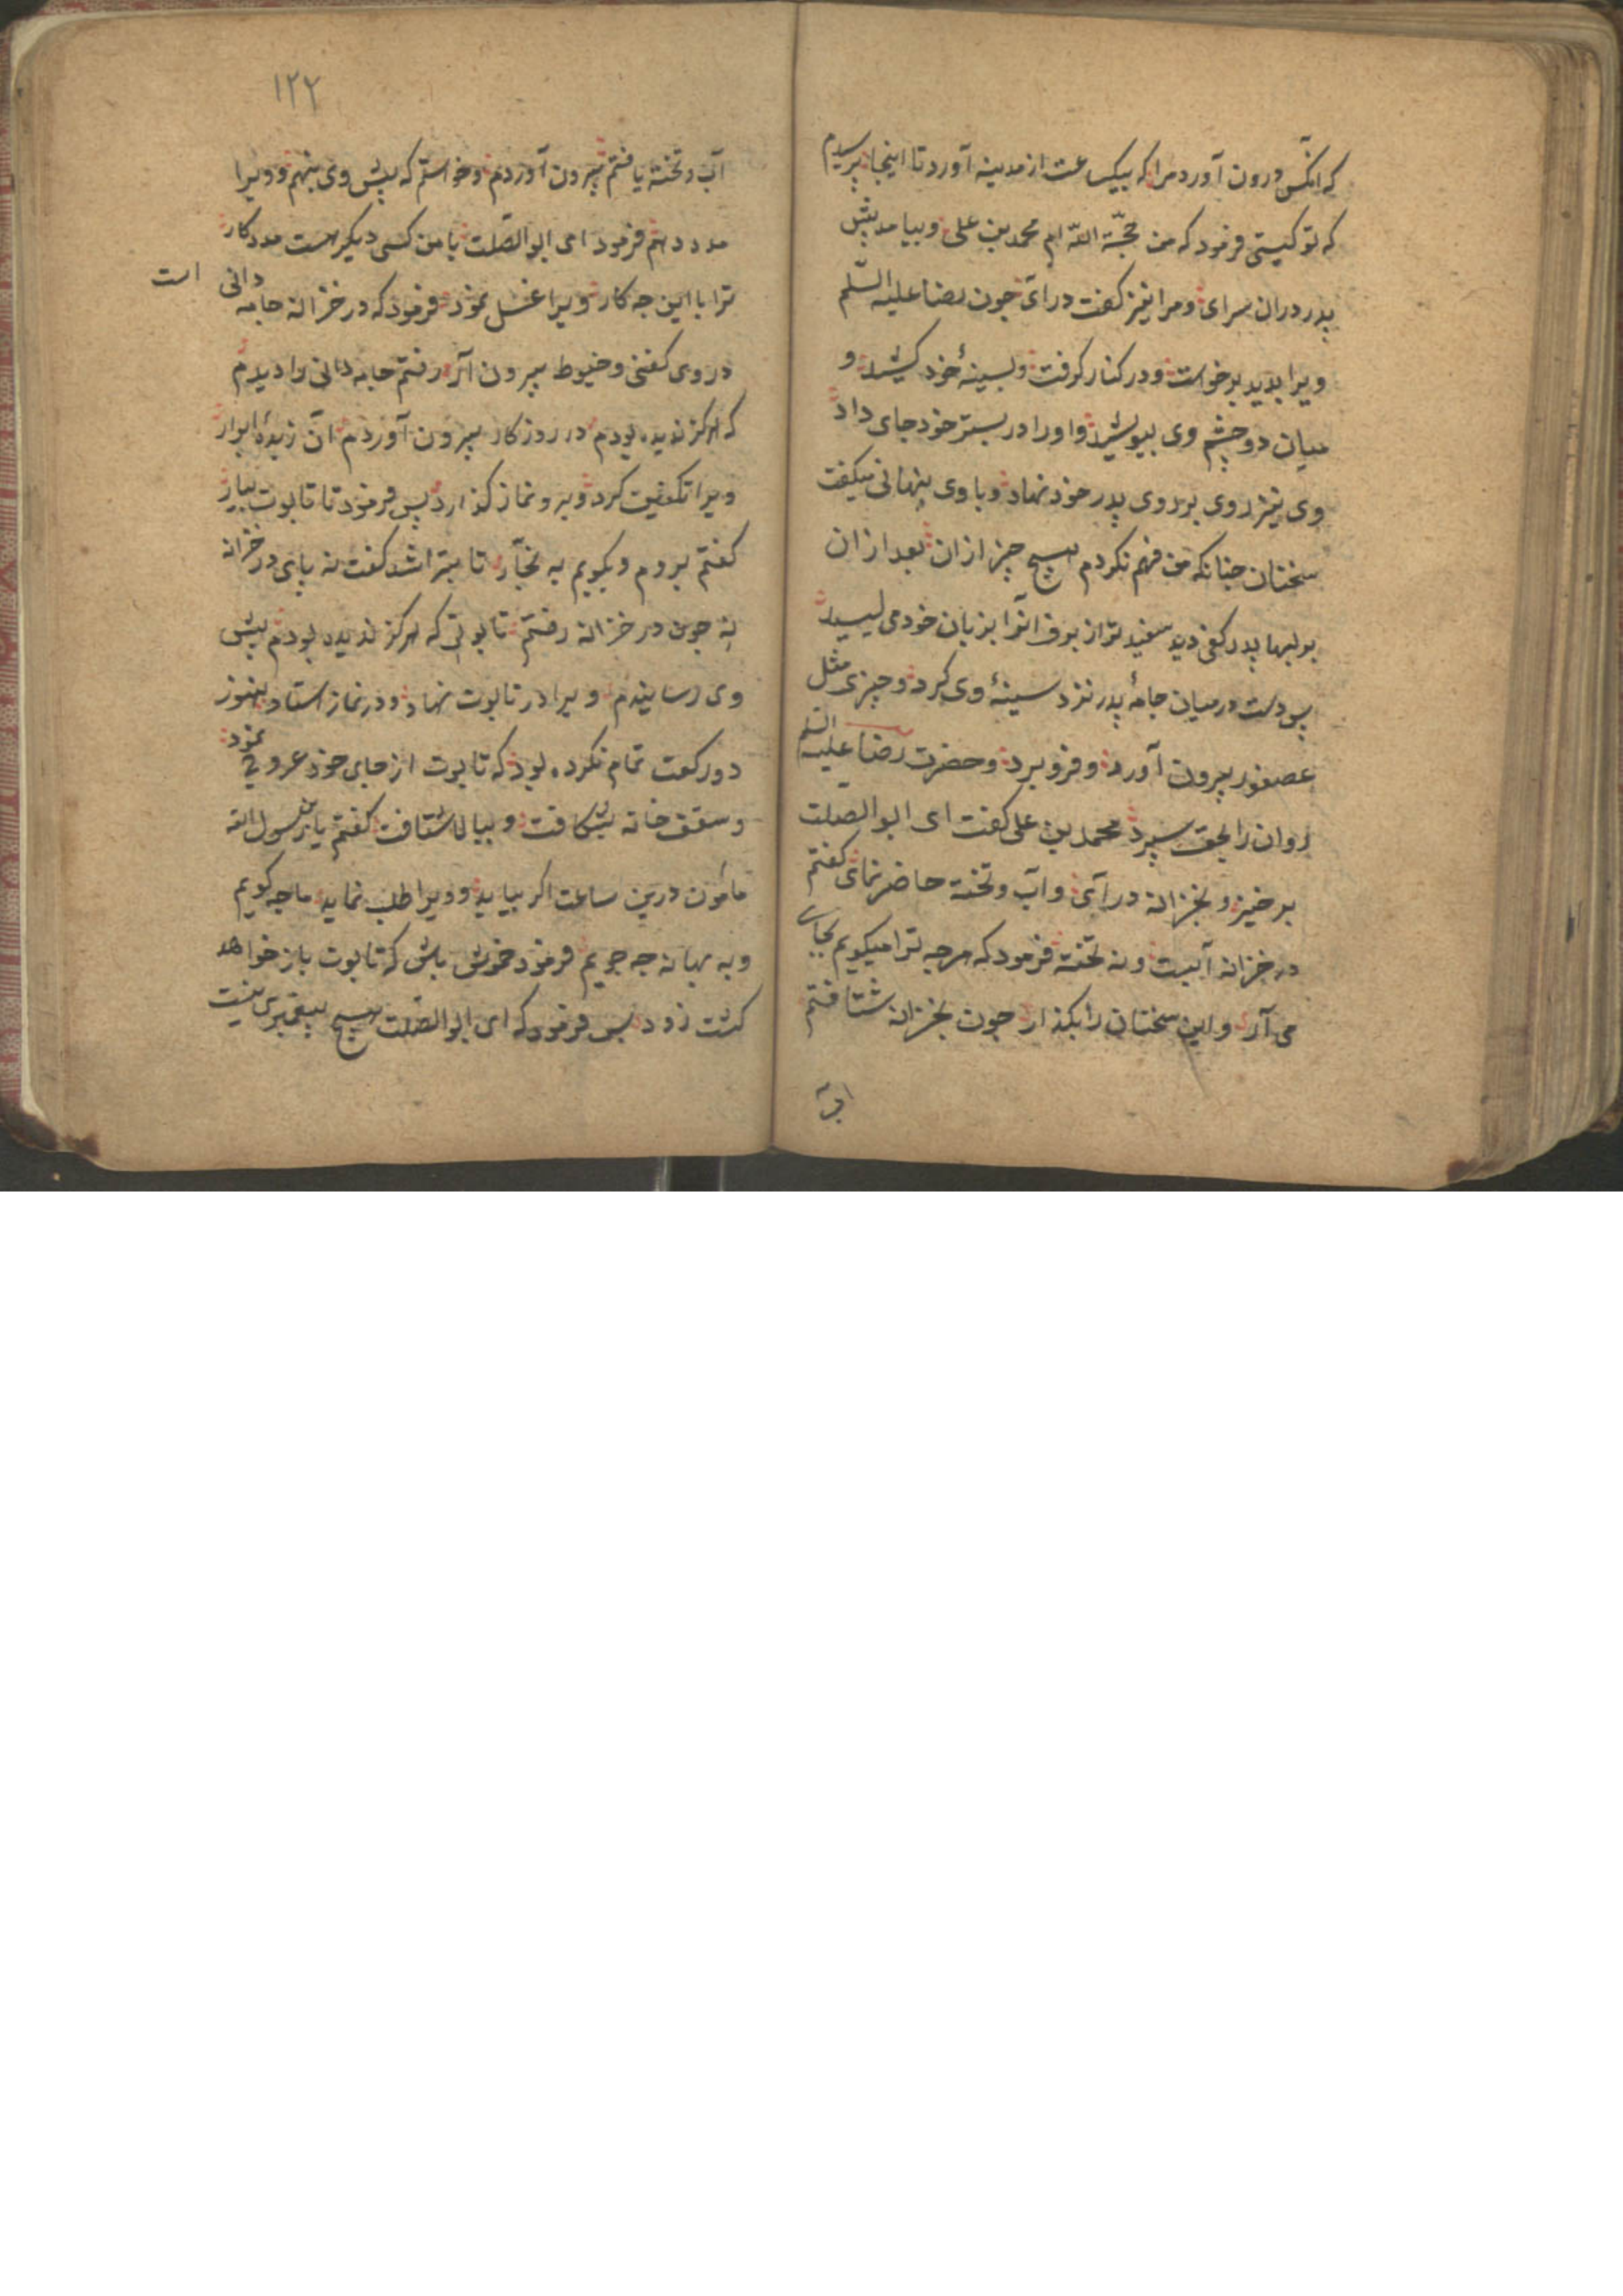 که انکس درون آورد مرا که بیکساعت از مدینه آورد تا اینجا پرسیدم
که تو کیستی فرمود که من حجّة اللّه ام محمد بن علی و بیامد پیش
پدر دران سرای و مرا نیز کفت درآی جون رضا علیه السّلم
ویرا بدید برخواست و در کنار کرفت و بسینهٔ خود کشید و
میان دو چشم وی ببوسید و او را در بستر خود جای داد
وی نیز روی بر روی پدر خود نهاد و با وی پنهانی میکفت
سخنان جنانکه من فهم نکردم هیچ چیز ازان بعد ازان
بر لبها پدر کفی دید سفیدتر از برف انرا بزبان خود می لیسید
پس دست در میان جامهٔ پدر نزد سینهٔ وی کرد و چیزی مثل
عصفور بیرون آورد و فرو برد و حضرت رضا علیه السلم
روان را بحق سپرد محمد بن علی کفت ای ابو الصلت
برخیز و بخزانه درآی و آب و تخته حاضر نمای کفتم
در خزانه آبست و نه تخته فرمود که هرچه ترا میکویم بجای
می آر و این سخنان را بکذار جون بخزانه شتافتم
۱۲۲
آب و تخته یافتم بیرون آوردم و خواستم که پیش وی بنهم و ویرا
مدد دهم فرمود ای ابو الصّلت با من کسی دیکر هست مددکار
ترا با این جه کار ویرا غسل نمود فرمود که در خزانه جامه دانی است
در وی کفنی و حنوط بیرون آر رفتم جامه دانی را دیدم
که هرکز ندیده بودم در روزکار بیرون آوردم آن زبدهٔ ابرار
ویرا تکفین کرد و برو نماز کذارد پس فرمود تا تابوت بیار
کفتم بروم و بکویم به نجّار تا بتراشد کفت نه پای در خزانه
نه جون در خزانه رفتم تابوتی که هرکز ندیده بودم پیش
وی رسانیدم ویرا در تابوت نهاد و در نماز استاد هنوز
دو رکعت تمام نکرده بود که تابوت از جای خود عروج نمود
و سقف خانه بشکافت و ببالا شتافت کفتم یا بن رسول الله
مأمون درین ساعت اکر بیاید و ویرا طلب نماید ما جه کویم
و به بهانه جه جویم فرمود خموش باش که تابوت باز خواهد
کشت زود پس فرمود که ای ابو الصّلت هیچ پیغمبری نیست